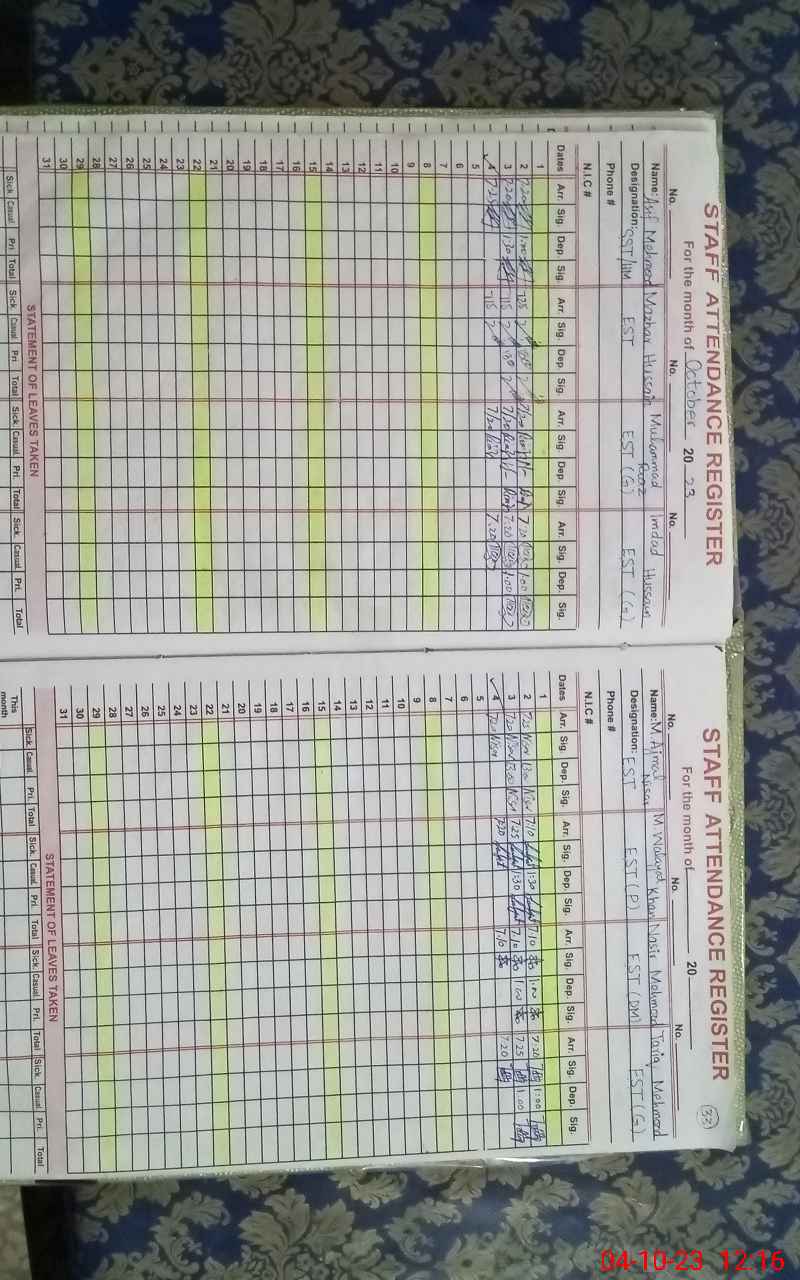 STAFF ATTENDANCE REGISTER
For the month of October 20 23
No. No. No.
Name: Asif Mehmood Mazhar Hussain Muhammad Imdad Hussain
Designation: SST/HM EST EST (G) EST (G)
Phone #
N.I.C #
Dates Arr. Sig. Dep. Sig. Arr. Sig. Dep. Sig. Arr. Sig. Dep. Sig. Arr. Sig. Dep. Sig.
1
2 7:20 1:00 7:25 7/20 7.20 1:00
3 7:20 1:30 7:15 1:30 7/20 7.20 1:00
4 7:25 7:15 7/20 7.20
5
6
7
8
9
10
11
12
13
14
15
16
17
18
19
20
21
22
23
24
25
26
27
28
29
30
31
STATEMENT OF LEAVES TAKEN
Sick Casual Pri Total Sick. Casual Pri. Total Sick. Casual Pri. Total Sick. Casual Pri. Total
STAFF ATTENDANCE REGISTER
33
For the month of 20
No. No. No.
Name: M. Ajmal Nisar M. Walayat Khan Nasir Mehmood Tariq Mehmood
Designation: EST EST (P) EST (DM) EST (G)
Phone #
N.I.C #
Dates Arr. Sig. Dep. Sig. Arr. Sig. Dep. Sig. Arr. Sig. Dep. Sig. Arr. Sig. Dep. Sig.
1
2 7:25 Nisar 1:30 Nisar 7:10 1:30 7:10 1:00 7:20 1:00
3 7:20 Nisar Nisar 7:25 1:30 7:10 1:00 7:25 1:00
4 7:20 Nisar 7:20 7:10 7:20
5
6
7
8
9
10
11
12
13
14
15
16
17
18
19
20
21
22
23
24
25
26
27
28
29
30
31
STATEMENT OF LEAVES TAKEN
Sick. Casual. Pri. Total Sick. Casual Pri. Total Sick. Casual. Pri. Total Sick. Casual Pri. Total
This month
04-10-23 12:16